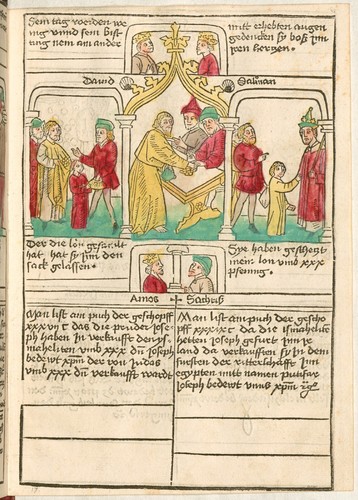 Sein tag werden we
nig vnnd sein bist
tung nem am ander
mitt erhebten augen
gedencken sy boß inn
iren hertzen.
David
Salman
Der die lön gesamelt
hat hat sy in den
sack gelassen.
Sye haben geschetzt
mein lon vmb xxx
pfennig.
Amos
Sachrias
Man list am puch der geschopff
xxxvij C das die pruder Jose
ph haben in verkaufft den ys
maheliten vmb xxx dn Joseph
bedewt xpm der von Judas
vmb xxx dn verkaufft wardt
Man list am puch der gescho
pff xxxix C da die ismahelite
hetten Joseph gefurt inn ir
land da verkaufften sy in dem
fursten der ritterschafft inn
egypten mitt namen putifar
Joseph bedewt vnns xpm